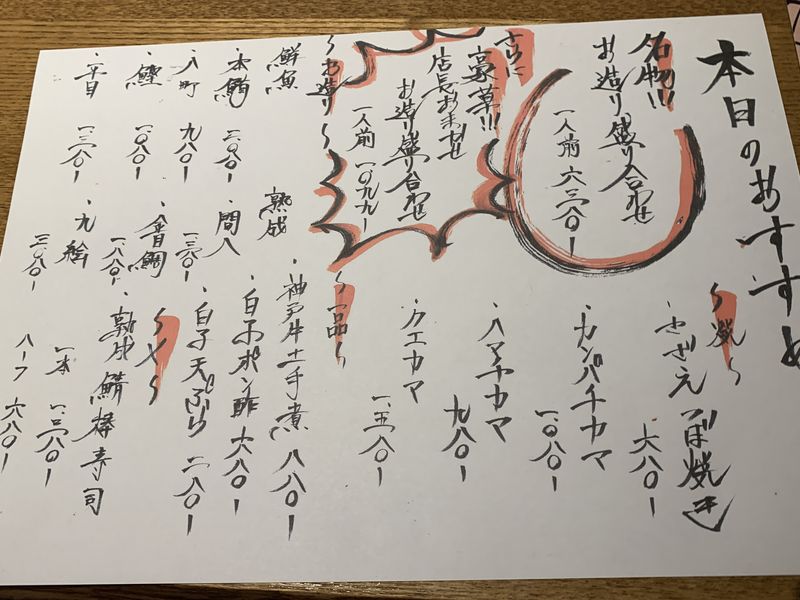 本日のおすすめ
名物!!!
お造り盛り合わせ
一人前 六三八〇ー
さらに
豪華!!!
店長おまかせ
お造り盛り合わせ
一人前 一〇九九ー
〜お造り〜
鮮魚
・本鮪 二〇八〇ー
・八町 九八〇ー
・鰹 一〇八〇ー
・平目 一三八〇ー
熟成
・間八 一三八〇ー
・金目鯛 一八八〇ー
・九絵 三〇八〇ー
〜焼〜
・さざえつぼ焼き 六八〇ー
・カンパチカマ 一〇八〇ー
・ハマチカマ 九八〇ー
・クエカマ 一五八〇ー
〜一品〜
・神戸牛土手煮 八八〇ー
・白子ポン酢 六八〇ー
・白子天ぷら 一二八〇ー
〜〆〜
・熟成鯖棒寿司
一本 一三八〇ー
ハーフ 六八〇ー